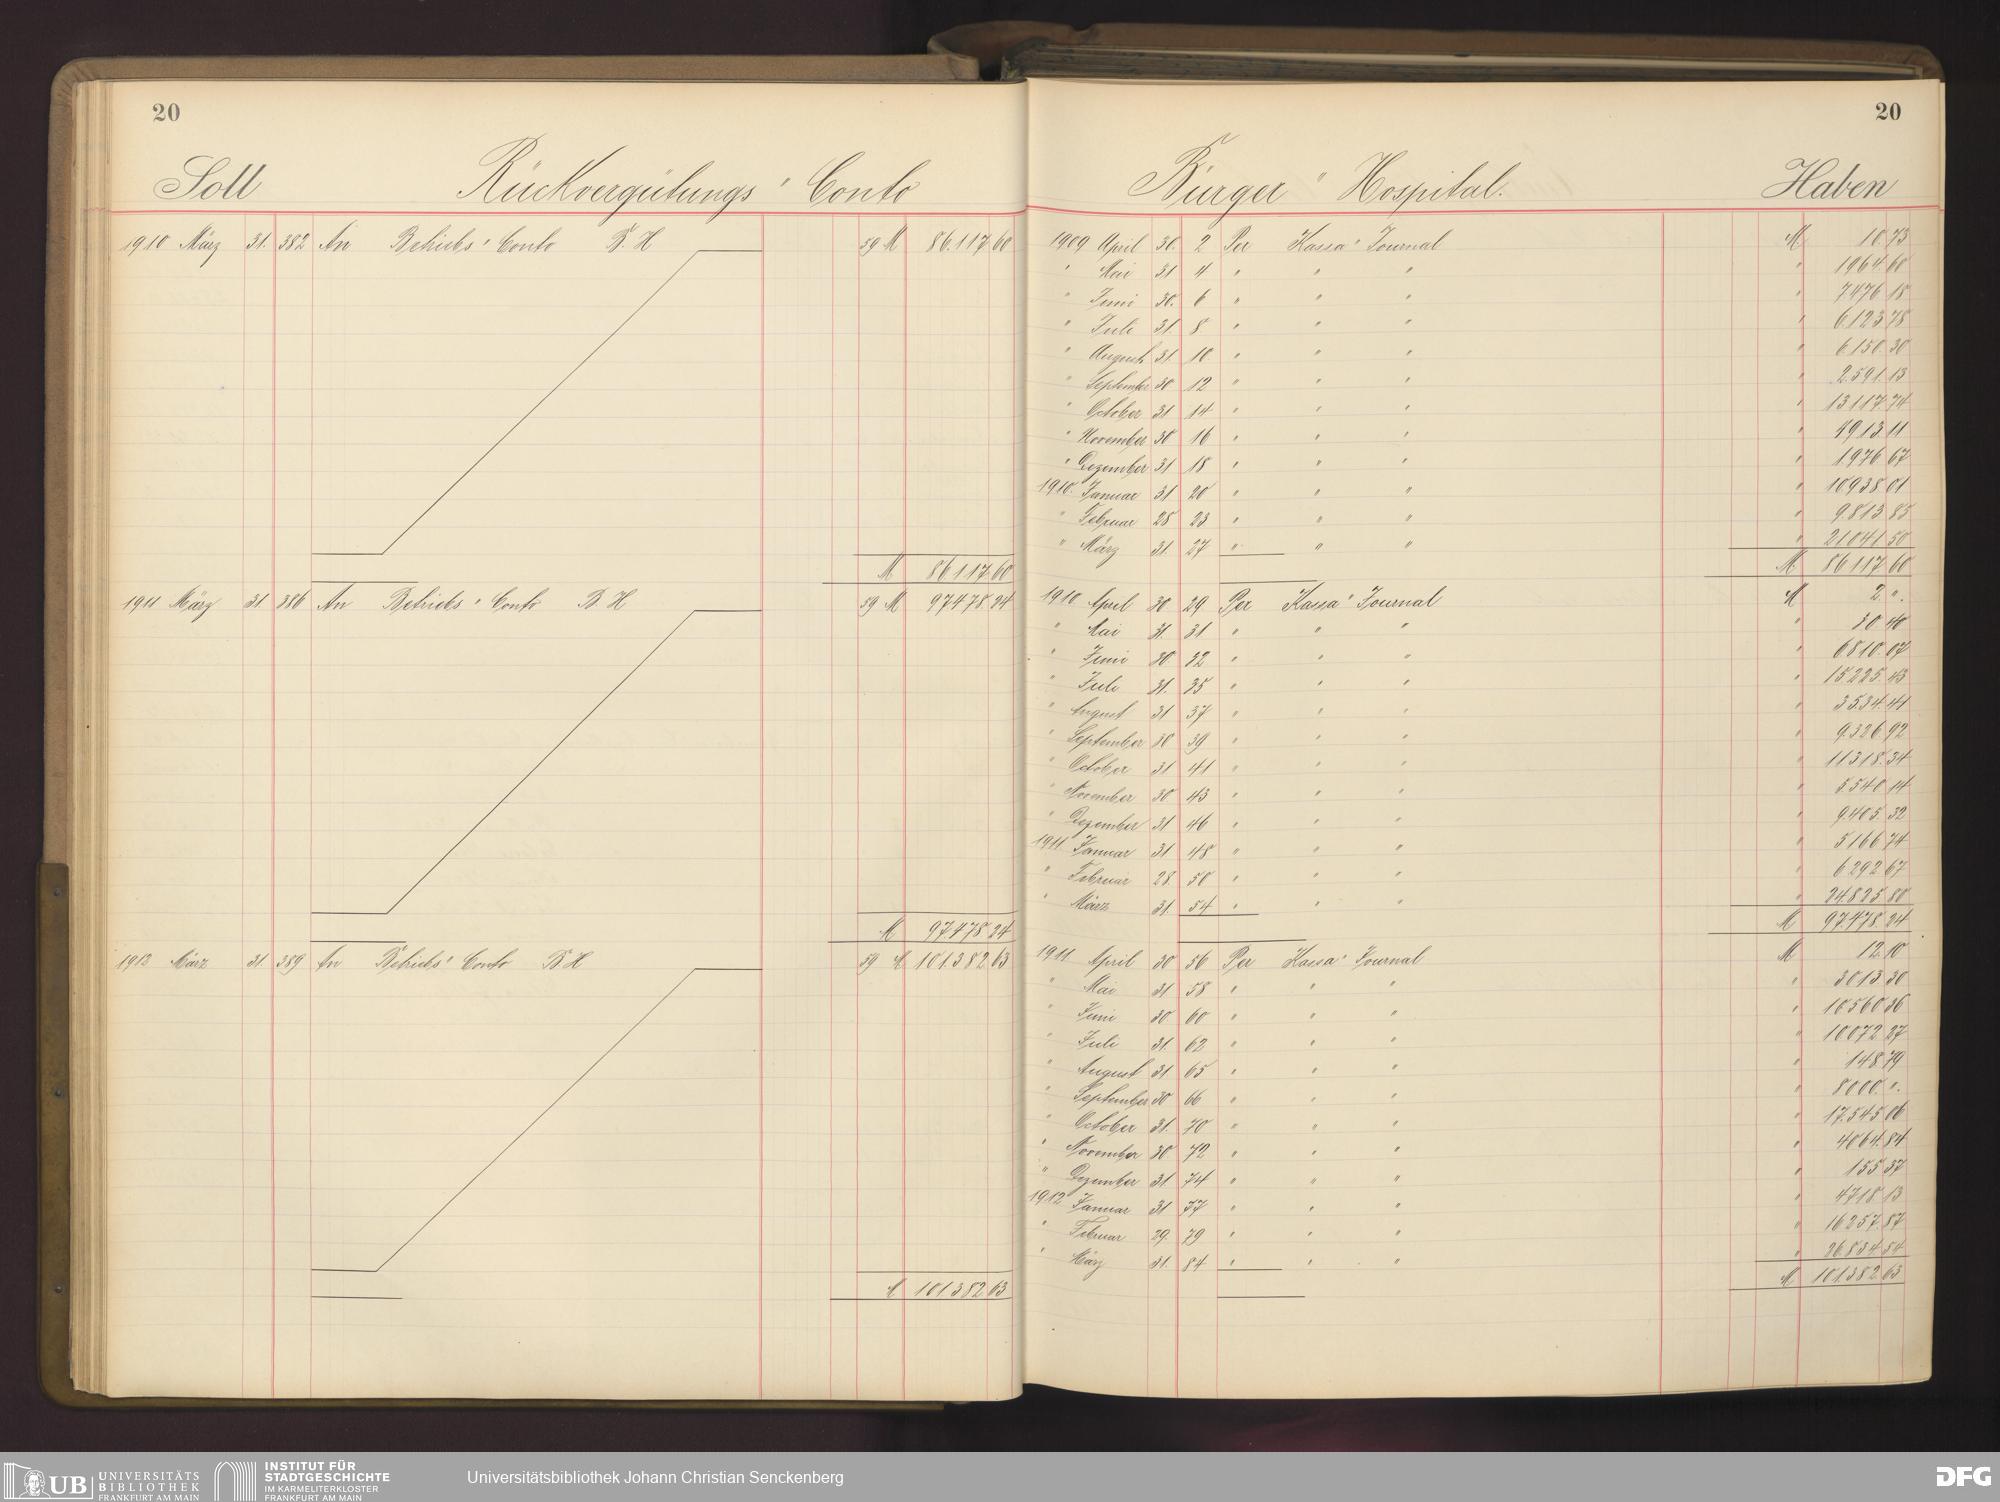 20
Soll Rückvergütungs " Conto
1910 März 31. 382 An Betriebs " Conto B. H 59 M 86.117 60
M 86.117 60
1911 März 31. 386 An Betriebs " Conto B. H 59 M 97478 24
M 97478 24
1912 März 31. 389 An Betriebs " Conto B H 59 M 101.382 63
M 101382 63
20
Bürger " Hospital. Haben
1909 April 30. 2 Per Kassa " Journal M 10.73
" Mai 31 4 " " " " 1964.60
" Juni 30. 6 " " " " 7476 18
" Juli 31 8 " " " " 6123 78
" August 31. 10 " " " " 6150.30
" September 30 12 " " " " 2.591.13
" October 31 14 " " " " 13117 74
" November 30 16 " " " " 4913 11
" Dezember 31 18 " " " " 1976 67
1910. Januar 31 20 " " " " 10938 01
" Februar 28 23 " " " " 9.813 85
" März 31. 27 " " " " 21041 50
M 86117 60
1910 April 30 29 Per Kassa " Journal M 2 ".
" Mai 31. 31 " " " " 30.40
" Juni 30 32 " " " " 6810.07
" Juli 31. 35 " " " " 15225.43
" August 31 37 " " " " 3534.41
" September 30 39 " " " " 9326 92
" October 31 41 " " " " 11318.34
" November 30 43 " " " " 5540 14
" Dezember 31 46 " " " " 9405.32
1911. Januar 31 48 " " " " 5166 74
" Februar 28. 50 " " " " 6292 67
" März 31. 54 " " " " 24825 80
M 97478.24
1911 April 30 56 Per Kassa " Journal M 12.10
" Mai 31 58 " " " " 3013 30
" Juni 30 60 " " " " 10560 36
" Juli 31. 62 " " " " 10072 27
" August 31 65 " " " " 148 79
" September 30 66 " " " " 8000 ".
" October 31. 70 " " " " 17545 06
" November 30 72 " " " " 4064.84
" Dezember 31. 74 " " " " 155 37
1912 Januar 31 77 " " " " 4718 13
" Februar 29. 79 " " " " 16257 87
" März 31. 84 " " " " 26834 54
M 101382 63
UB UNIVERSITÄTS BIBLIOTHEK FRANKFURT AM MAIN
INSTITUT FÜR STADTGESCHICHTE IM KARMELITERKLOSTER FRANKFURT AM MAIN
Universitätsbibliothek Johann Christian Senckenberg
DFG